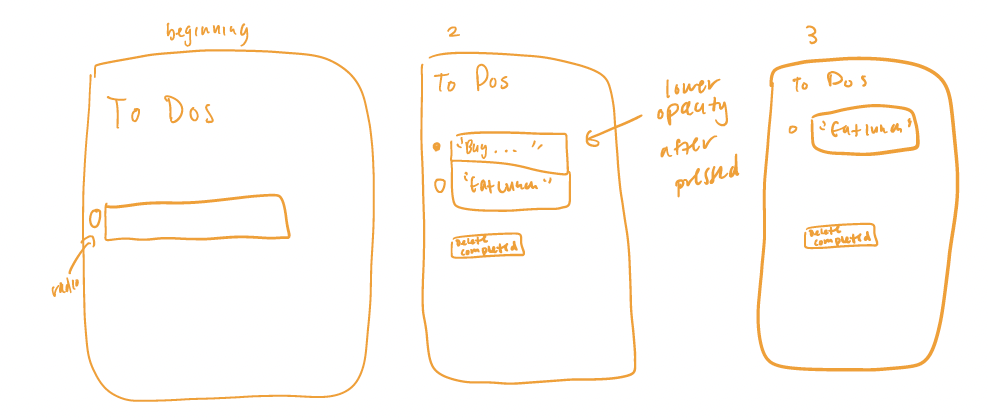 beginning
To Dos
radio
2
To Dos
"Buy... "
"Eat lunch"
Delete
completed
lower
opacity
after
pressed
3
To Dos
"Eat lunch"
Delete
completed